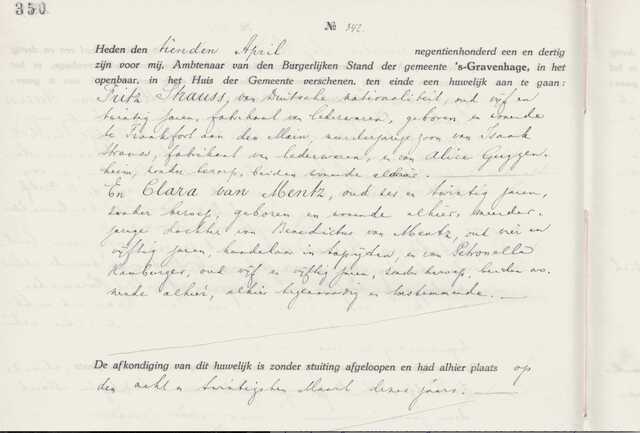 350
№ 342.
Heden den tienden April negentienhonderd een en dertig
zijn voor mij, Ambtenaar van den Burgerlijken Stand der gemeente 's-Gravenhage, in het
openbaar, in het Huis der Gemeente verschenen, ten einde een huwelijk aan te gaan:
Fritz Strauss, van Duitsche nationaliteit, oud vijf en
twintig jaren, fabrikant van lederwaren, geboren en wonende
te Frankfort aan den Main, meerderjarige zoon van Isaak
Strauss, fabrikant van lederwaren, en van Alice Guggen-
heim, zonder beroep, beiden wonende aldaar.
En Clara van Mentz, oud zes en twintig jaren,
zonder beroep, geboren en wonende alhier, meerder-
jarige dochter van Benedictus van Mentz, oud
vijftig jaren, handelaar in tapijten, en van Petronella
Hamburger, oud vijf en vijftig jaren, zonder beroep, beiden wo-
nende alhier, alhier tegenwoordig en toestemmende.
De afkondiging van dit huwelijk is zonder stuiting afgeloopen en had alhier plaats op
den acht en twintigsten Maart dezes jaars.